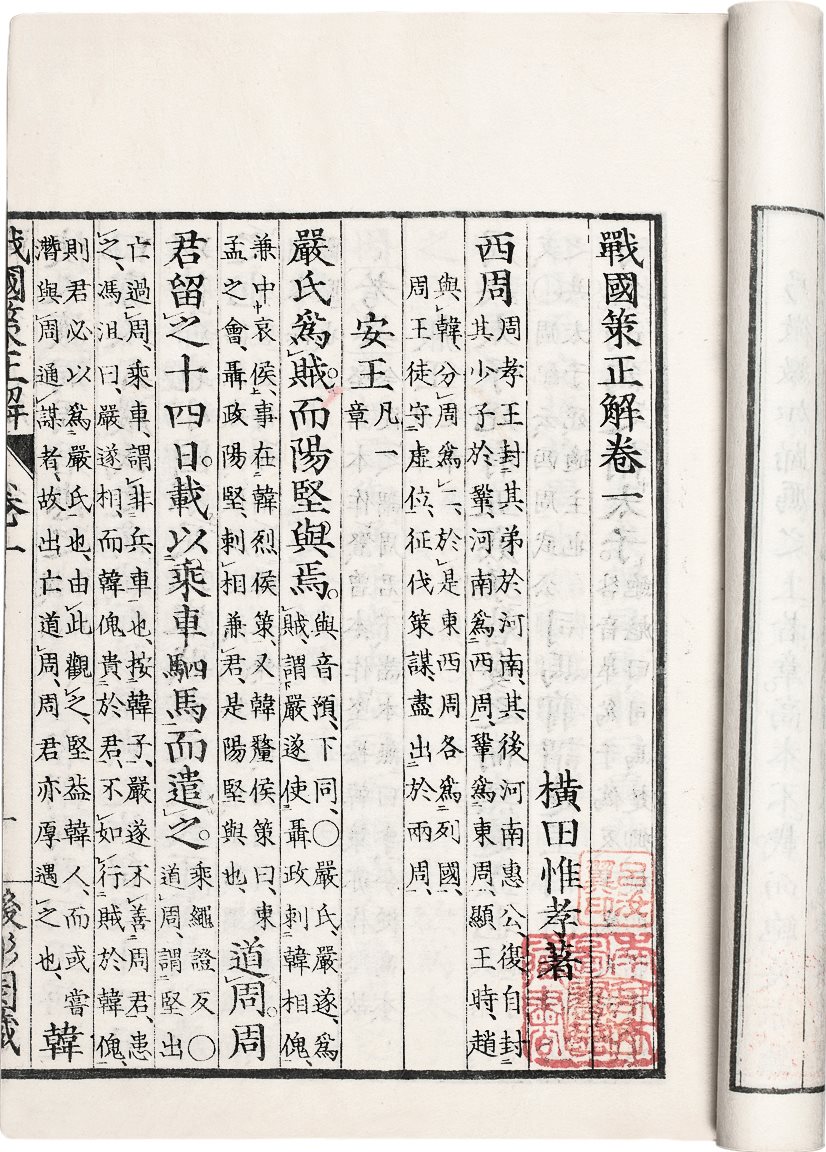 戰國策正解卷一
橫田惟孝著
西周
周孝王封其弟於河南、其後河南惠公、復自封
其少子於鞏、河南爲西周、鞏爲東周、顯王時、趙
與韓、分周爲二、於是東西周各爲列國、
周王徒守虛位、征伐策謀、盡出於兩周、
安王
凡一
章
嚴氏爲賊。而陽堅與焉。
與音預、下同、〇嚴氏、嚴遂、爲
賊、謂嚴遂使聶政刺韓相傀、
兼中哀侯、事在韓烈侯策、又韓釐侯策曰、東
孟之會、聶政陽堅、刺相兼君、是陽堅與也、
道周。周
君留之十四日。載以乘車駟馬而遣之。
乘繩證反〇
道周、謂堅出
亡過周、乘車、謂非兵車也、按韓子、嚴遂不善周君、患
之、馮沮曰、嚴遂相、而韓傀貴於君、不如行賊於韓傀、
則君必以爲嚴氏也、由此觀之、堅蓋韓人、而或嘗
潛與周通謀者、故出亡道周、周君亦厚遇之也、
韓
戰國策正解
卷一
一